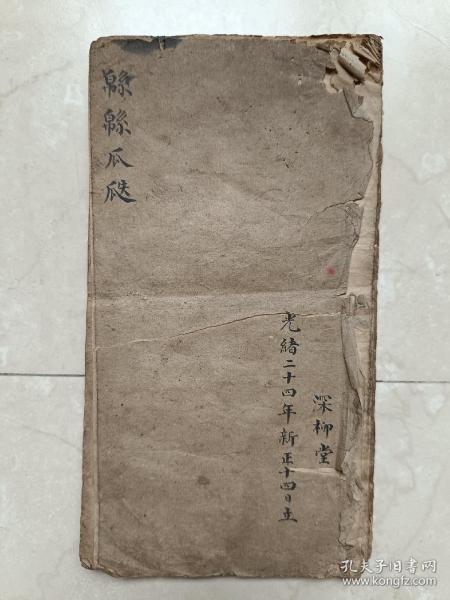 緜緜瓜瓞
深柳堂
光緒二十四年新正十四日立
孔夫子旧书网
www.kongfz.com